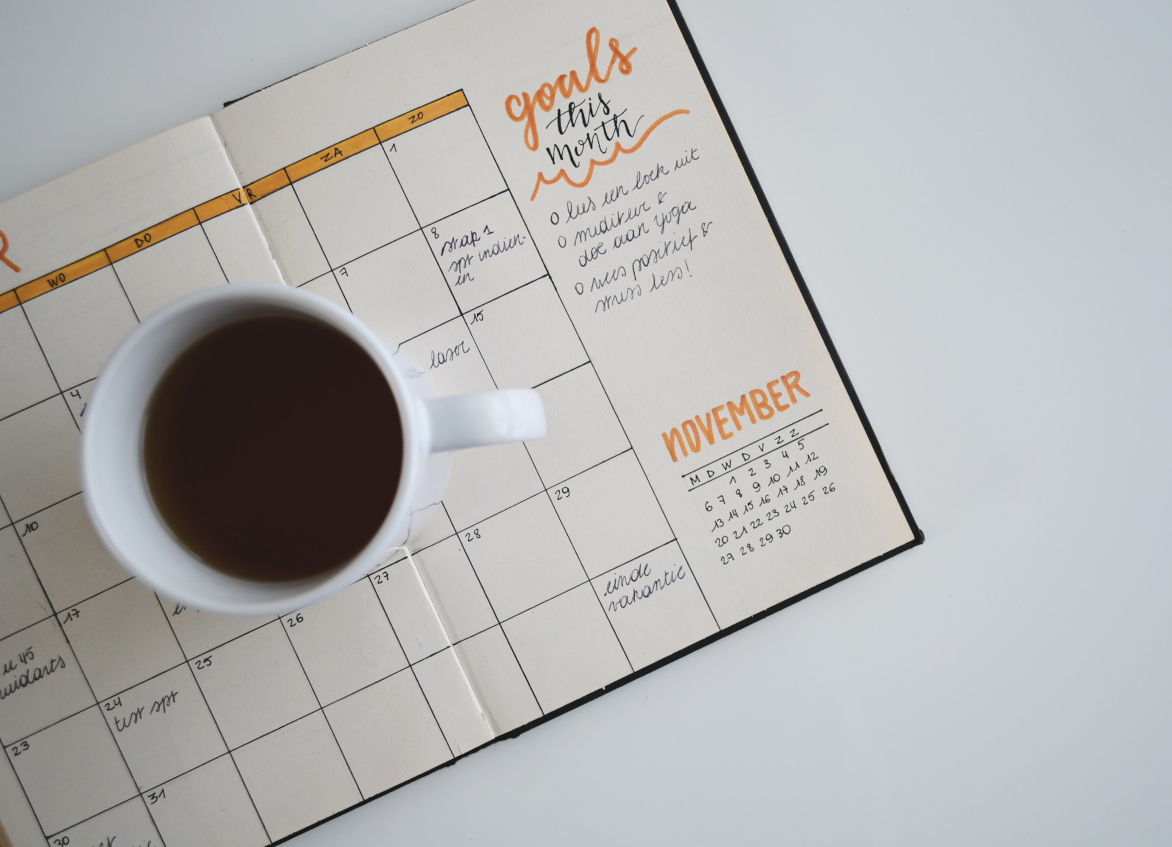 R
WO DO VR ZA ZO
1
4 7 8
stap 1
spt indien-
en
10 15
laser
17
u 45
24 25 26 27 28 29
test spt
einde
vakantie
23
30 31
goals
this
month
o lees een boek uit
o mediteer &
doe aan yoga
o wees positief &
stress less!
NOVEMBER
M D W D V Z Z
1 2 3 4 5
6 7 8 9 10 11 12
13 14 15 16 17 18 19
20 21 22 23 24 25 26
27 28 29 30